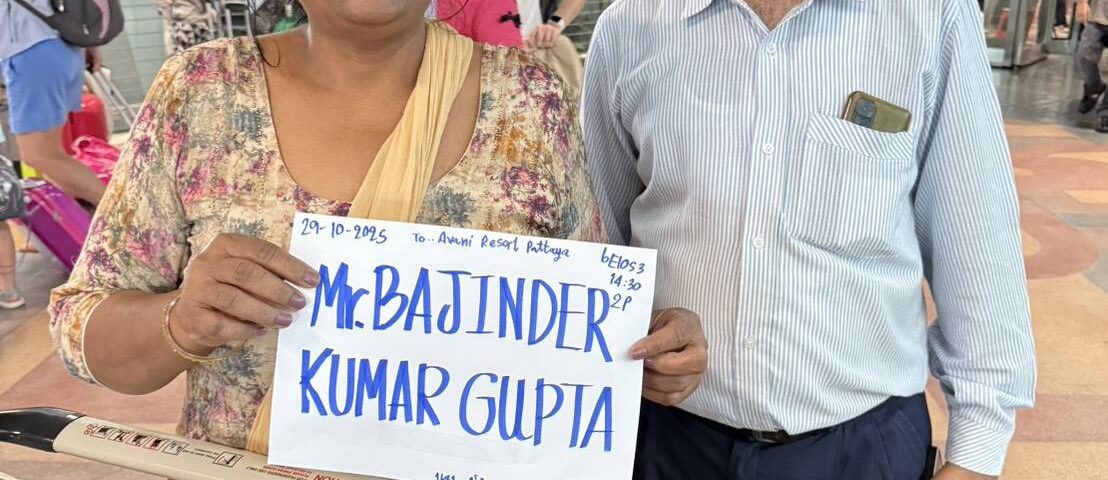 29-10-2025 To.. Avani Resort Pattaya
6E1053
14:30
2P
Mr. BAJINDER
KUMAR GUPTA